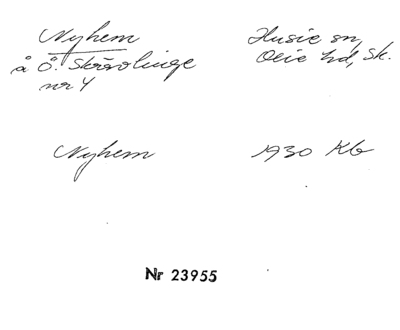 Nyhem
å Ö. Skrävlinge
nr 4
Husie sn,
Oxie hd, Sk.
Nyhem
1930 Kb
Nr 23955